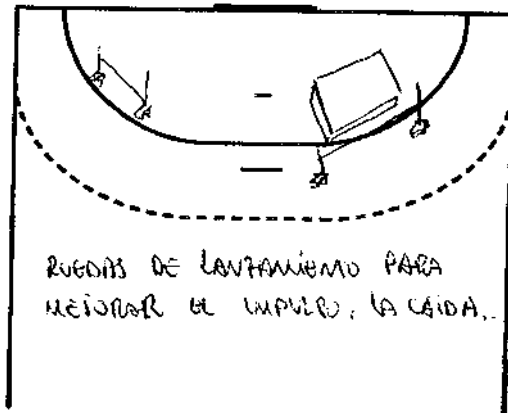 RUEDAS DE LANZAMIENTO PARA
MEJORAR EL IMPULSO, LA CAIDA...